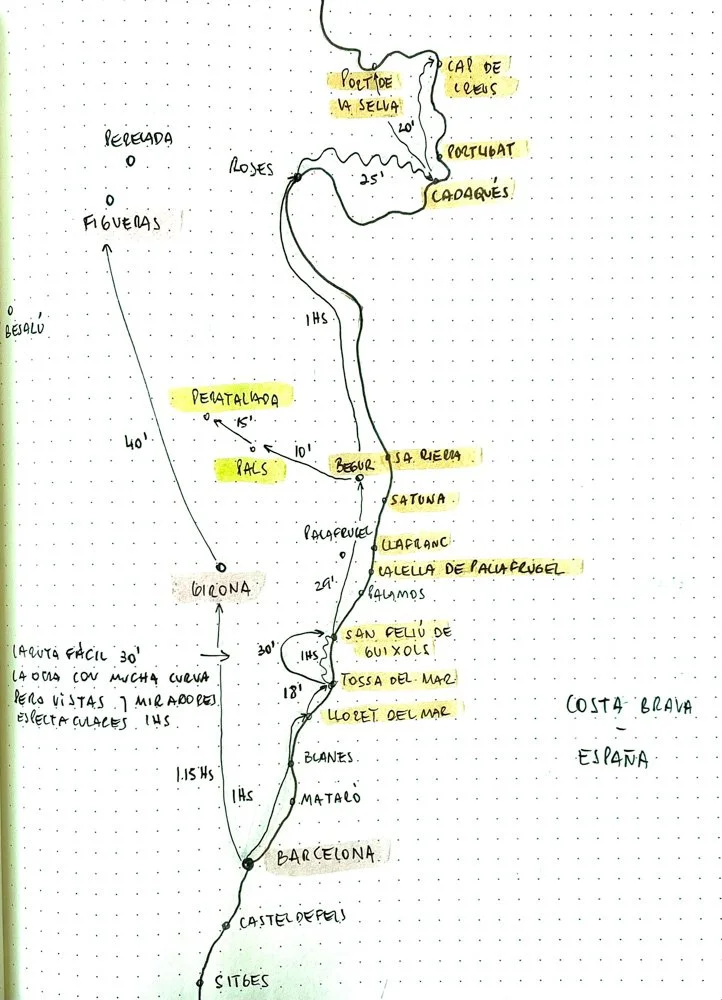 PORT DE
LA SELVA
CAP DE
CREUS
20'
PERELADA
PORTLIGAT
ROSES
25'
CADAQUÉS
FIGUERAS
1HS
BESALÚ
PERATALLADA
15'
40'
10'
PALS
BEGUR
SA RIERA
SATUNA
PALAFRUGEL
LLAFRANC
CALELLA DE PALLAFRUGEL
29'
PALAMOS
GIRONA
SAN FELIÚ DE
GUIXOLS
30'
1HS
LA RUTA FÁCIL 30'
LA OTRA CON MUCHA CURVA
PERO VISTAS Y MIRADORES
ESPECTACULARES 1HS
TOSSA DEL MAR
18'
LLORET DEL MAR
COSTA BRAVA
-
ESPAÑA
BLANES
1.15HS
1HS
MATARÒ
BARCELONA
CASTELDEFELS
SITGES